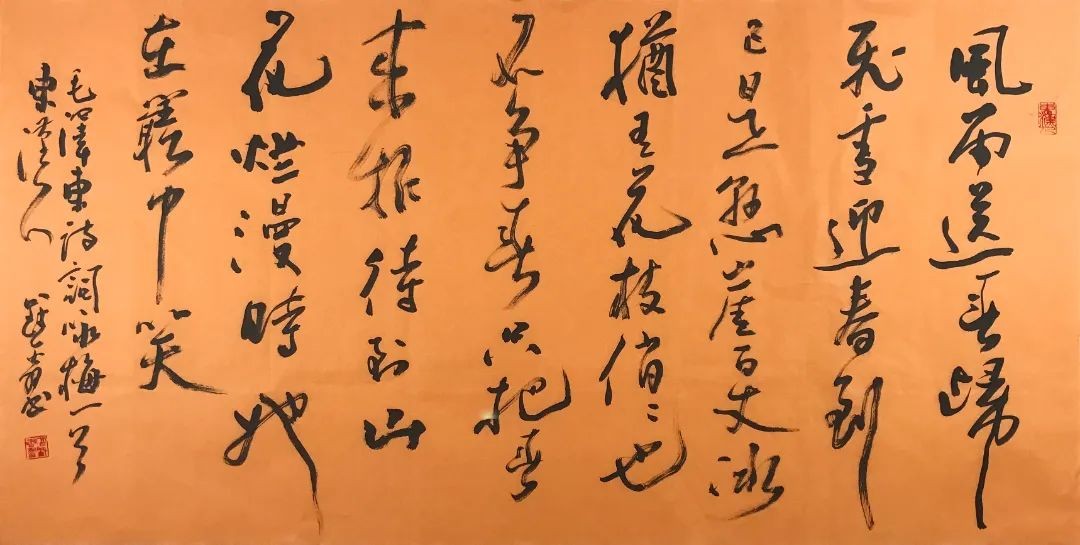 風雨送春歸
飛雪迎春到
已是懸崖百丈冰
猶有花枝俏〻也
不争春只把春
来报待到山
花烂漫時她
在叢中笑
毛澤東詩詞咏梅一首